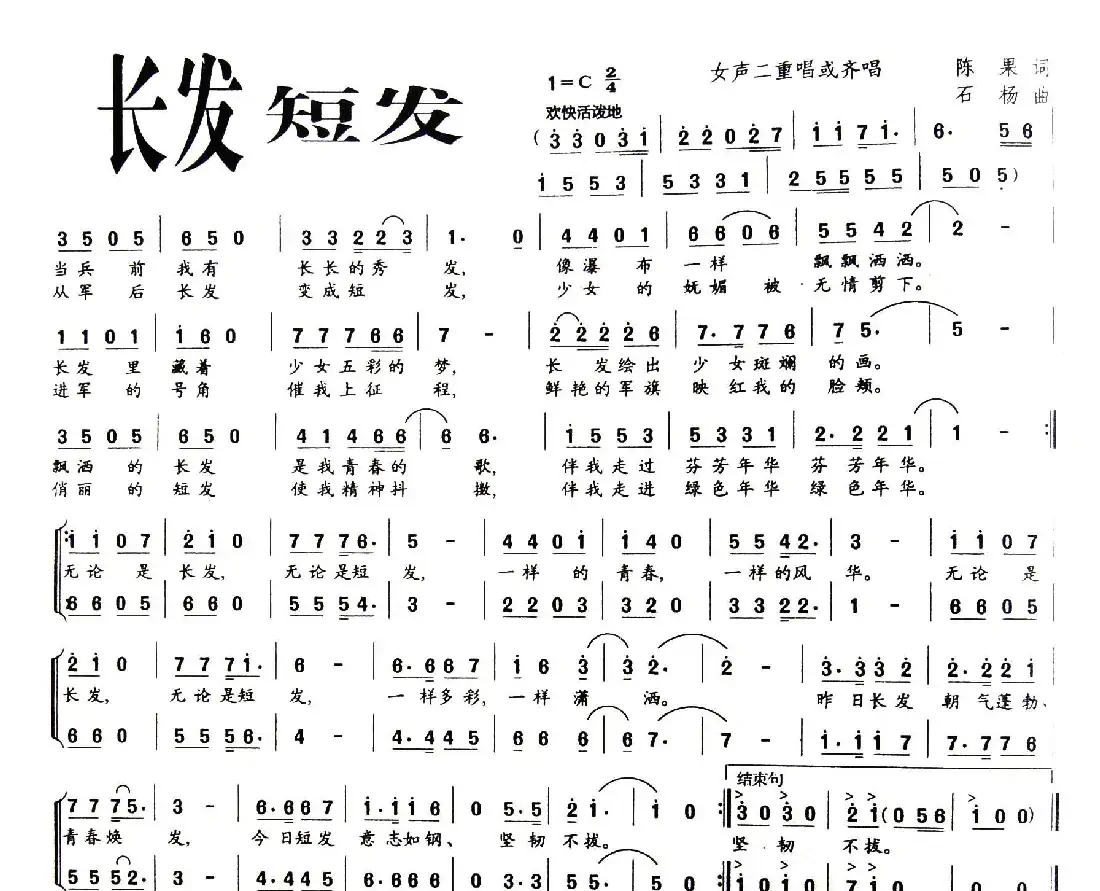 长发短发
1=C 2/4
女声二重唱或齐唱
陈果词
石杨曲
欢快活泼地
(3 3 0 3 1 | 2 2 0 2 7 | 1 1 7 1· | 6· 5 6
1 5 5 3 | 5 3 3 1 | 2 5 5 5 5 | 5 0 5)
3 5 0 5 | 6 5 0 | 3 3 2 2 3 | 1· 0 | 4 4 0 1 | 6 6 0 6 | 5 5 4 2 | 2 -
当兵前我有长长的秀发,像瀑布一样飘飘洒洒。
从军后长发变成短发,少女的妩媚被无情剪下。
1 1 0 1 | 1 6 0 | 7 7 7 6 6 | 7 - | 2 2 2 2 6 | 7· 7 7 6 | 7 5· | 5 -
长发里藏着少女五彩的梦,长发绘出少女斑斓的画。
进军的号角催我上征程,鲜艳的军旗映红我的脸颊。
3 5 0 5 | 6 5 0 | 4 1 4 6 6 | 6 6· | 1 5 5 3 | 5 3 3 1 | 2· 2 2 1 | 1 - :|
飘洒的长发是我青春的歌,伴我走过芬芳年华芬芳年华。
俏丽的短发使我精神抖擞,伴我走进绿色年华绿色年华。
1 1 0 7 | 2 1 0 | 7 7 7 6· | 5 - | 4 4 0 1 | 1 4 0 | 5 5 4 2· | 3 - | 1 1 0 7
无论是长发,无论是短发,一样的青春,一样的风华。无论是
6 6 0 5 | 6 6 0 | 5 5 5 4· | 3 - | 2 2 0 3 | 3 2 0 | 3 3 2 2· | 1 - | 6 6 0 5
2 1 0 | 7 7 7 1· | 6 - | 6· 6 6 7 | 1 6 3 | 3 2· | 2 - | 3· 3 3 2 | 2· 2 2 1
长发,无论是短发,一样多彩,一样潇洒。昨日长发朝气蓬勃、
6 6 0 | 5 5 5 6· | 4 - | 4· 4 4 5 | 6 6 6 | 6 7· | 7 - | 1· 1 1 7 | 7· 7 7 6
结束句
7 7 7 5· | 3 - | 6· 6 6 7 | 1· 1 1 6 | 0 5· 5 | 2 1· | 1 0 :| 3 0 3 0 | 2 1 (0 5 6 | 1 0 0)
青春焕发,今日短发意志如钢、坚韧不拔。坚韧不拔。
5 5 5 2· | 3 - | 4· 4 4 5 | 6· 6 6 6 | 0 3· 3 | 5 5· | 5 0 :| 1 0 1 0